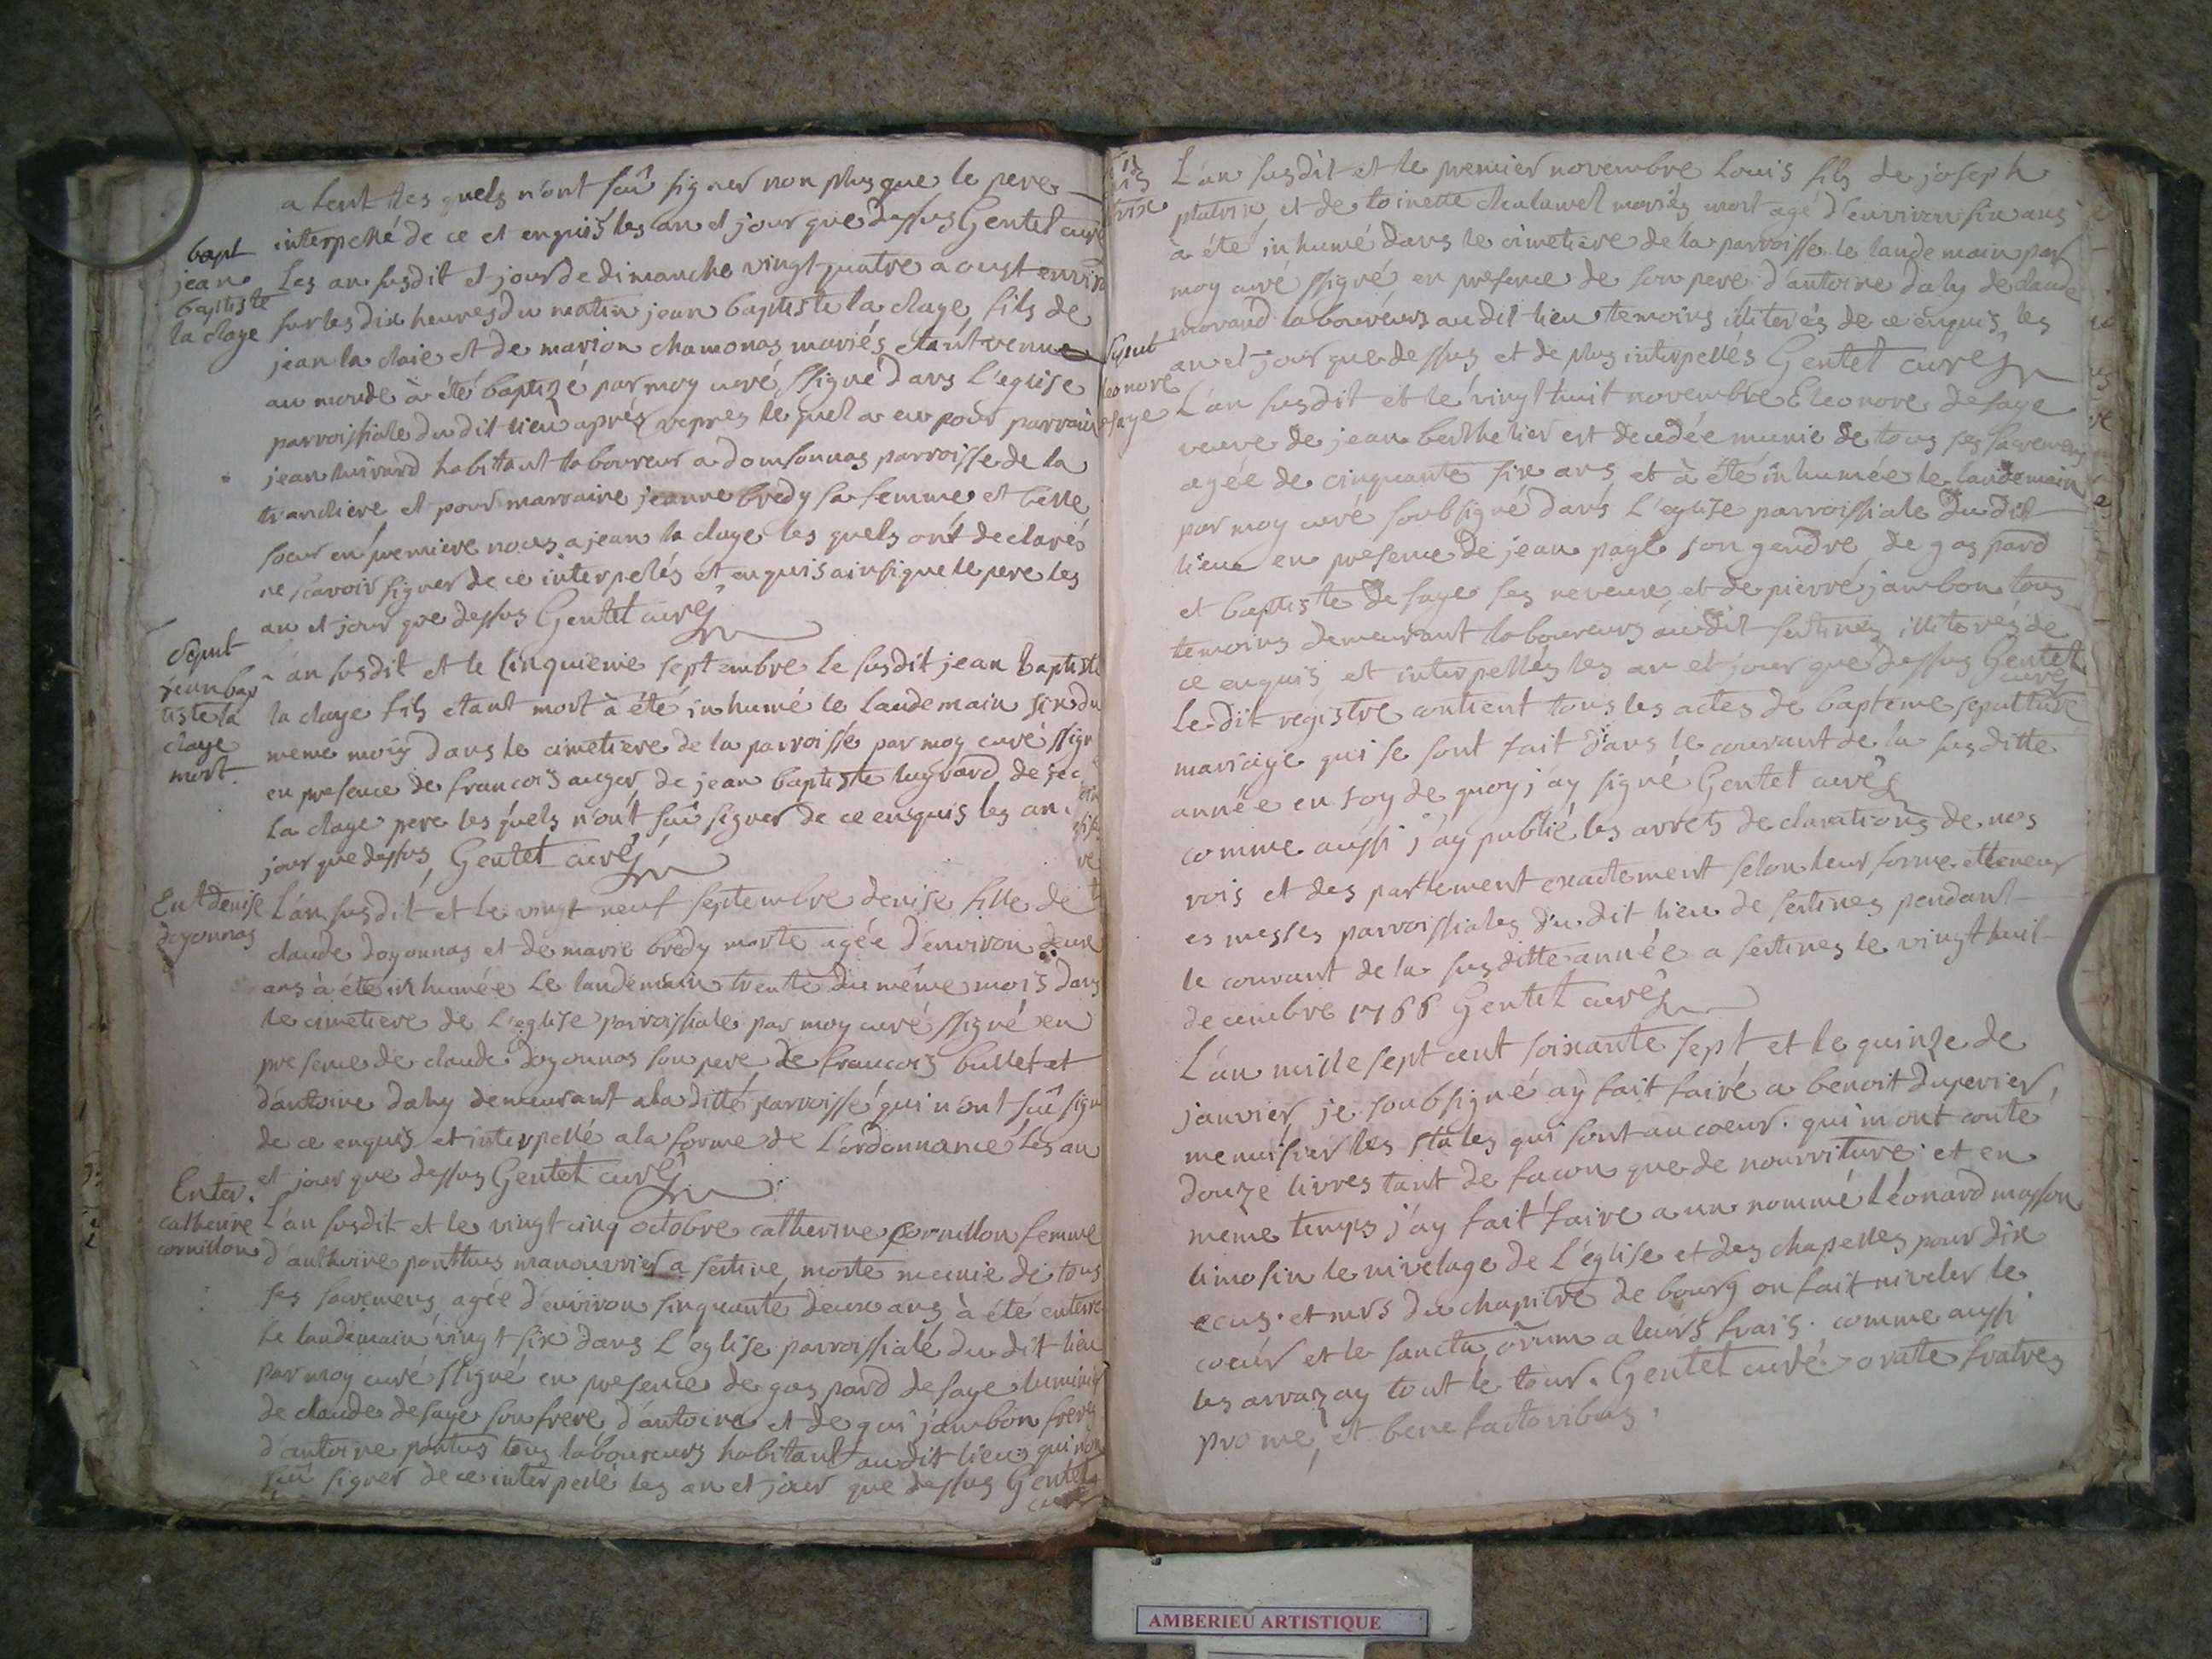 a tent les quels n'ont sçû signer non plus que le pere
interpellé de ce et enquis les an et jour que dessus Gentet curé
bapt
jean
baptiste
la claye
Les an susdit et jour de dimanche vingt quatre aoust environ
sur les dix heures du matin jean baptiste la claye fils de
jean la claie et de marion chamonas mariés etant venu
au monde à été baptizé par moy curé ssigné dans L'eglise
parroissiale du dit lieu après vepres le quel a eu pour parrain
jean habitant laboureur a domsonnas parroisse de la
trancliere et pour marraine jeanne bredy sa femme et belle
soeur en premiere noces a jean la claye les quels ont declarés
ne scavoir signer de ce interpelés et enquis ainsi que le pere les
an et jour que dessus Gentet curé
sepult
jean bap
tiste la
claye
mort.
L'an susdit et le cinquieme septembre le susdit jean baptiste
la claye fils etant mort à été inhumé le landemain six du
meme mois dans le cimetiere de la parroisse par moy curé ssigné
en presence de francois auger, de jean baptiste de
La claye pere les quels n'ont sçû signer de ce enquis les an
jour que dessus, Gentet curé
Ent denise
doyonnas
L'an susdit et le vingt neuf septembre denise fille de
claude doyonnas et de marie bredy morte agée d'environ deux
ans à été inhumée Le landemain trente du même mois dans
le cimetiere de L'eglise parroissiale par moy curé ssigné en
presence de claude doyonnas son pere de francois bullet et
d'antoine dahy demeurant a la ditte parroisse qui n'ont sçû signer
de ce enquis et interpellé a la forme de L'ordonnance les an
et jour que dessus Gentet curé
Enter.
catherine
cornillon
L'an susdit et le vingt cinq octobre catherine cornillon femme
d'anthoine panthus manouvrier a sertine, morte munie de tous
ses sacremens agée d'environ sinquante deux ans à été enterré
le landemain vingt six dans L'eglise parroissiale du dit lieu
par moy curé ssigné en presence de gaspard desaye
de claude desaye son frere d'antoine et de gui jambon freres
d'antoine pantus tous laboureurs habitant audit lieu qui n'ont
sçû signer de ce interpellé les an et jour que dessus Gentet
curé
L'an susdit et le premier novembre Louis fils de joseph
platrix et de toinette chalumel mariés mort agé d'environ six ans
à été inhumé dans le cimetiere de la parroisse le landemain par
moy curé ssigné en presence de son pere d'antoine dahy de claude
morand laboureurs audit lieu temoins illiterés de ce enquis les
an et jour que dessus et de plus interpellés Gentet curé
sepult
leonore
desaye
L'an susdit et le vingt huit novembre Eleonore desaye
veuve de jean berthelier est decedée munie de tous ses sacremens
agée de cinquante six ans et à été inhumée le landemain
par moy curé soubsigné dans L'eglize parroissiale du dit
lieu en presence de jean page son gendre de gaspard
et baptiste desaye ses neveux et de pierre jambon tous
temoins demeurant laboureurs audit sertines illiterés de
ce enquis et interpellés les an et jour que dessus Gentet
curé
Le dit registre contient tous les actes de bapteme sepulture
mariage qui se sont fait dans le courant de la susditte
année en foy de quoy j'ay signé Gentet curé
comme aussi j'ay publié les arrets declarations de nos
rois et des parlement exactement selon leur forme et teneur
es messes parroissiales du dit lieu de sertines pendant
le courant de la susditte année a sertines le vingt huit
decembre 1766 Gentet curé
L'an mille sept cent soixante sept et le quinze de
janvier je soubsigné ay fait faire a benoit duperier
menuisier les stales qui sont au coeur. qui m'ont couté
douze livres tant de facon que de nourriture et en
meme temps j'ay fait faire a un nommé Léonard masson
limosin le nivelage de L'église et des chapelles pour dix
ecus. et mrs du chapitre de bourg on fait niveler le
coeur et le sancta orum a leurs frais. comme aussi
tout le tour. Gentet curé. orate fratres
pro me, et benefactoribus.
AMBERIEU ARTISTIQUE